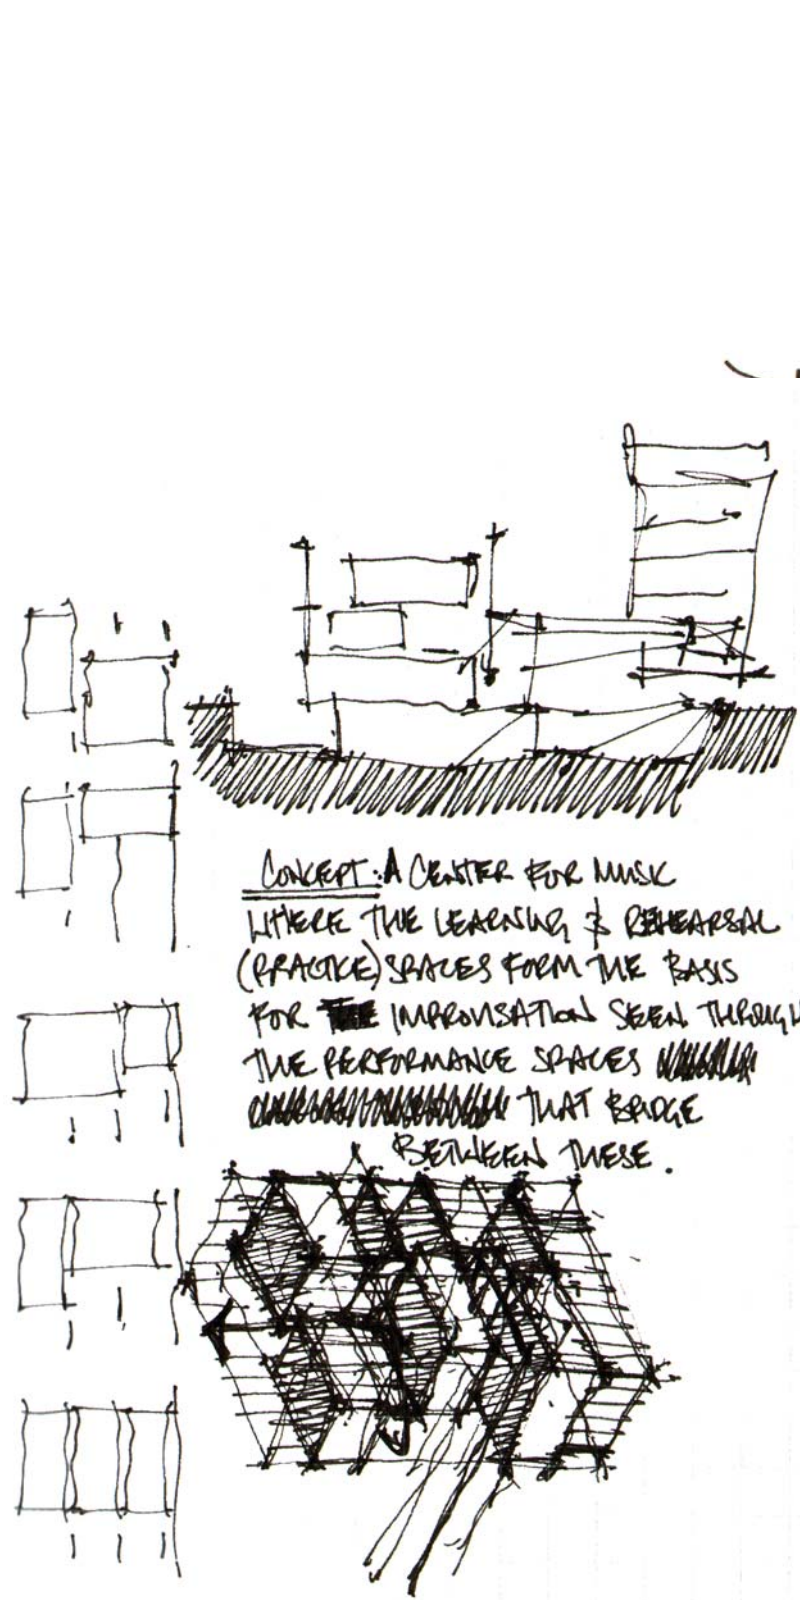 CONCEPT: A CENTER FOR MUSIC
WHERE THE LEARNING & REHEARSAL
(PRACTICE) SPACES FORM THE BASIS
FOR THE IMPROVISATION SEEN THROUGH
THE PERFORMANCE SPACES
THAT BRIDGE
BETWEEN THESE.